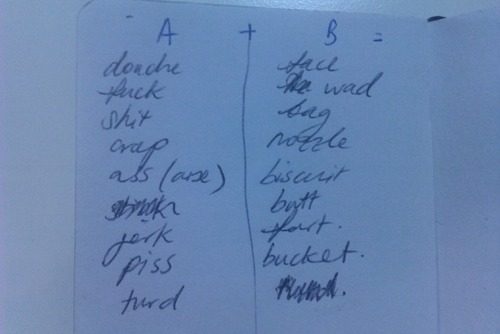 A + B =
douche face
fuck wad
shit bag
crap nozzle
ass (arse) biscuit
butt
jerk fart.
piss bucket.
turd